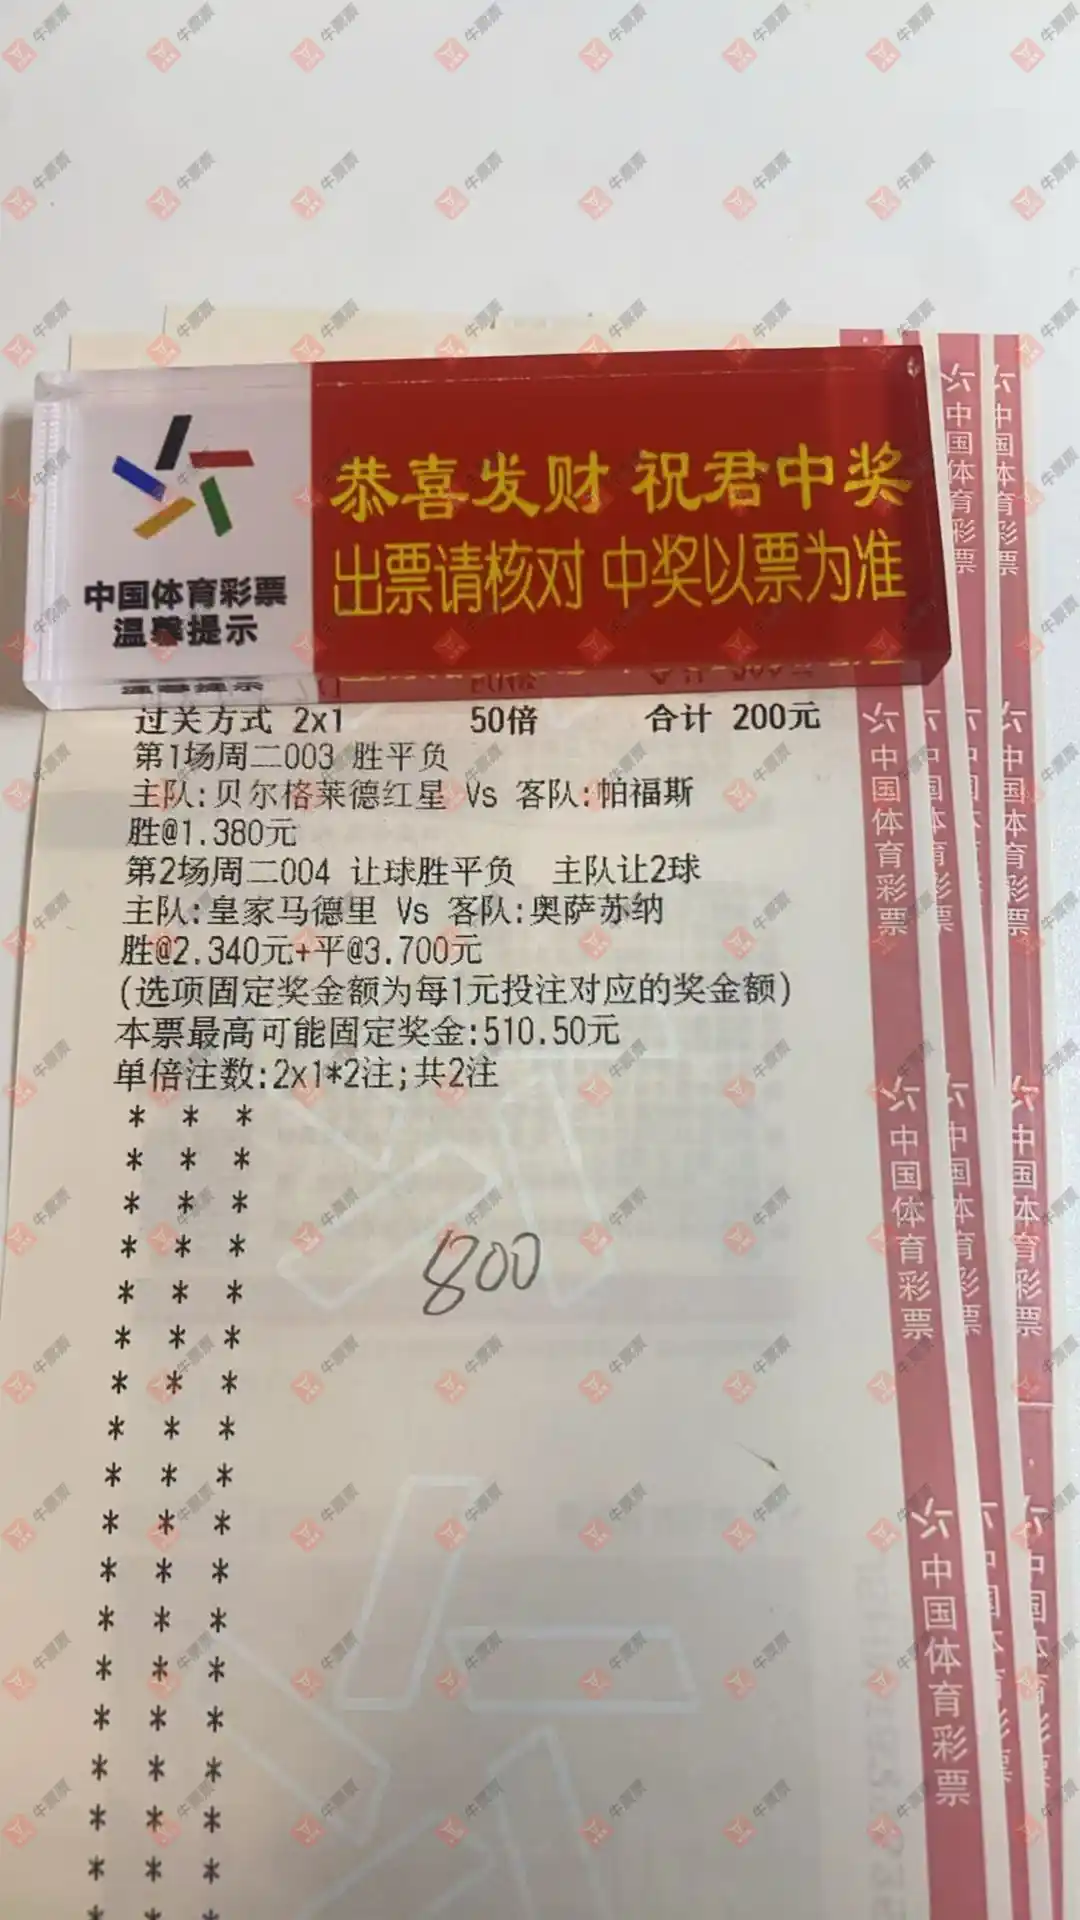 恭喜发财 祝君中奖
出票请核对 中奖以票为准
中国体育彩票
温馨提示
过关方式 2x1 50倍 合计 200元
第1场周二003 胜平负
主队:贝尔格莱德红星 Vs 客队:帕福斯
胜@1.380元
第2场周二004 让球胜平负 主队让2球
主队:皇家马德里 Vs 客队:奥萨苏纳
胜@2.340元+平@3.700元
(选项固定奖金额为每1元投注对应的奖金额)
本票最高可能固定奖金:510.50元
单倍注数:2x1*2注;共2注
* * *
* * *
* * *
* * *
* * *
* * *
* * *
* * *
* * *
* * *
* * *
* * *
* * *
* * *
* * *
* * *
* * *
* *
800
中国体育彩票
中国体育彩票
中国体育彩票
中国体育彩票
中国体育彩票
牛票票